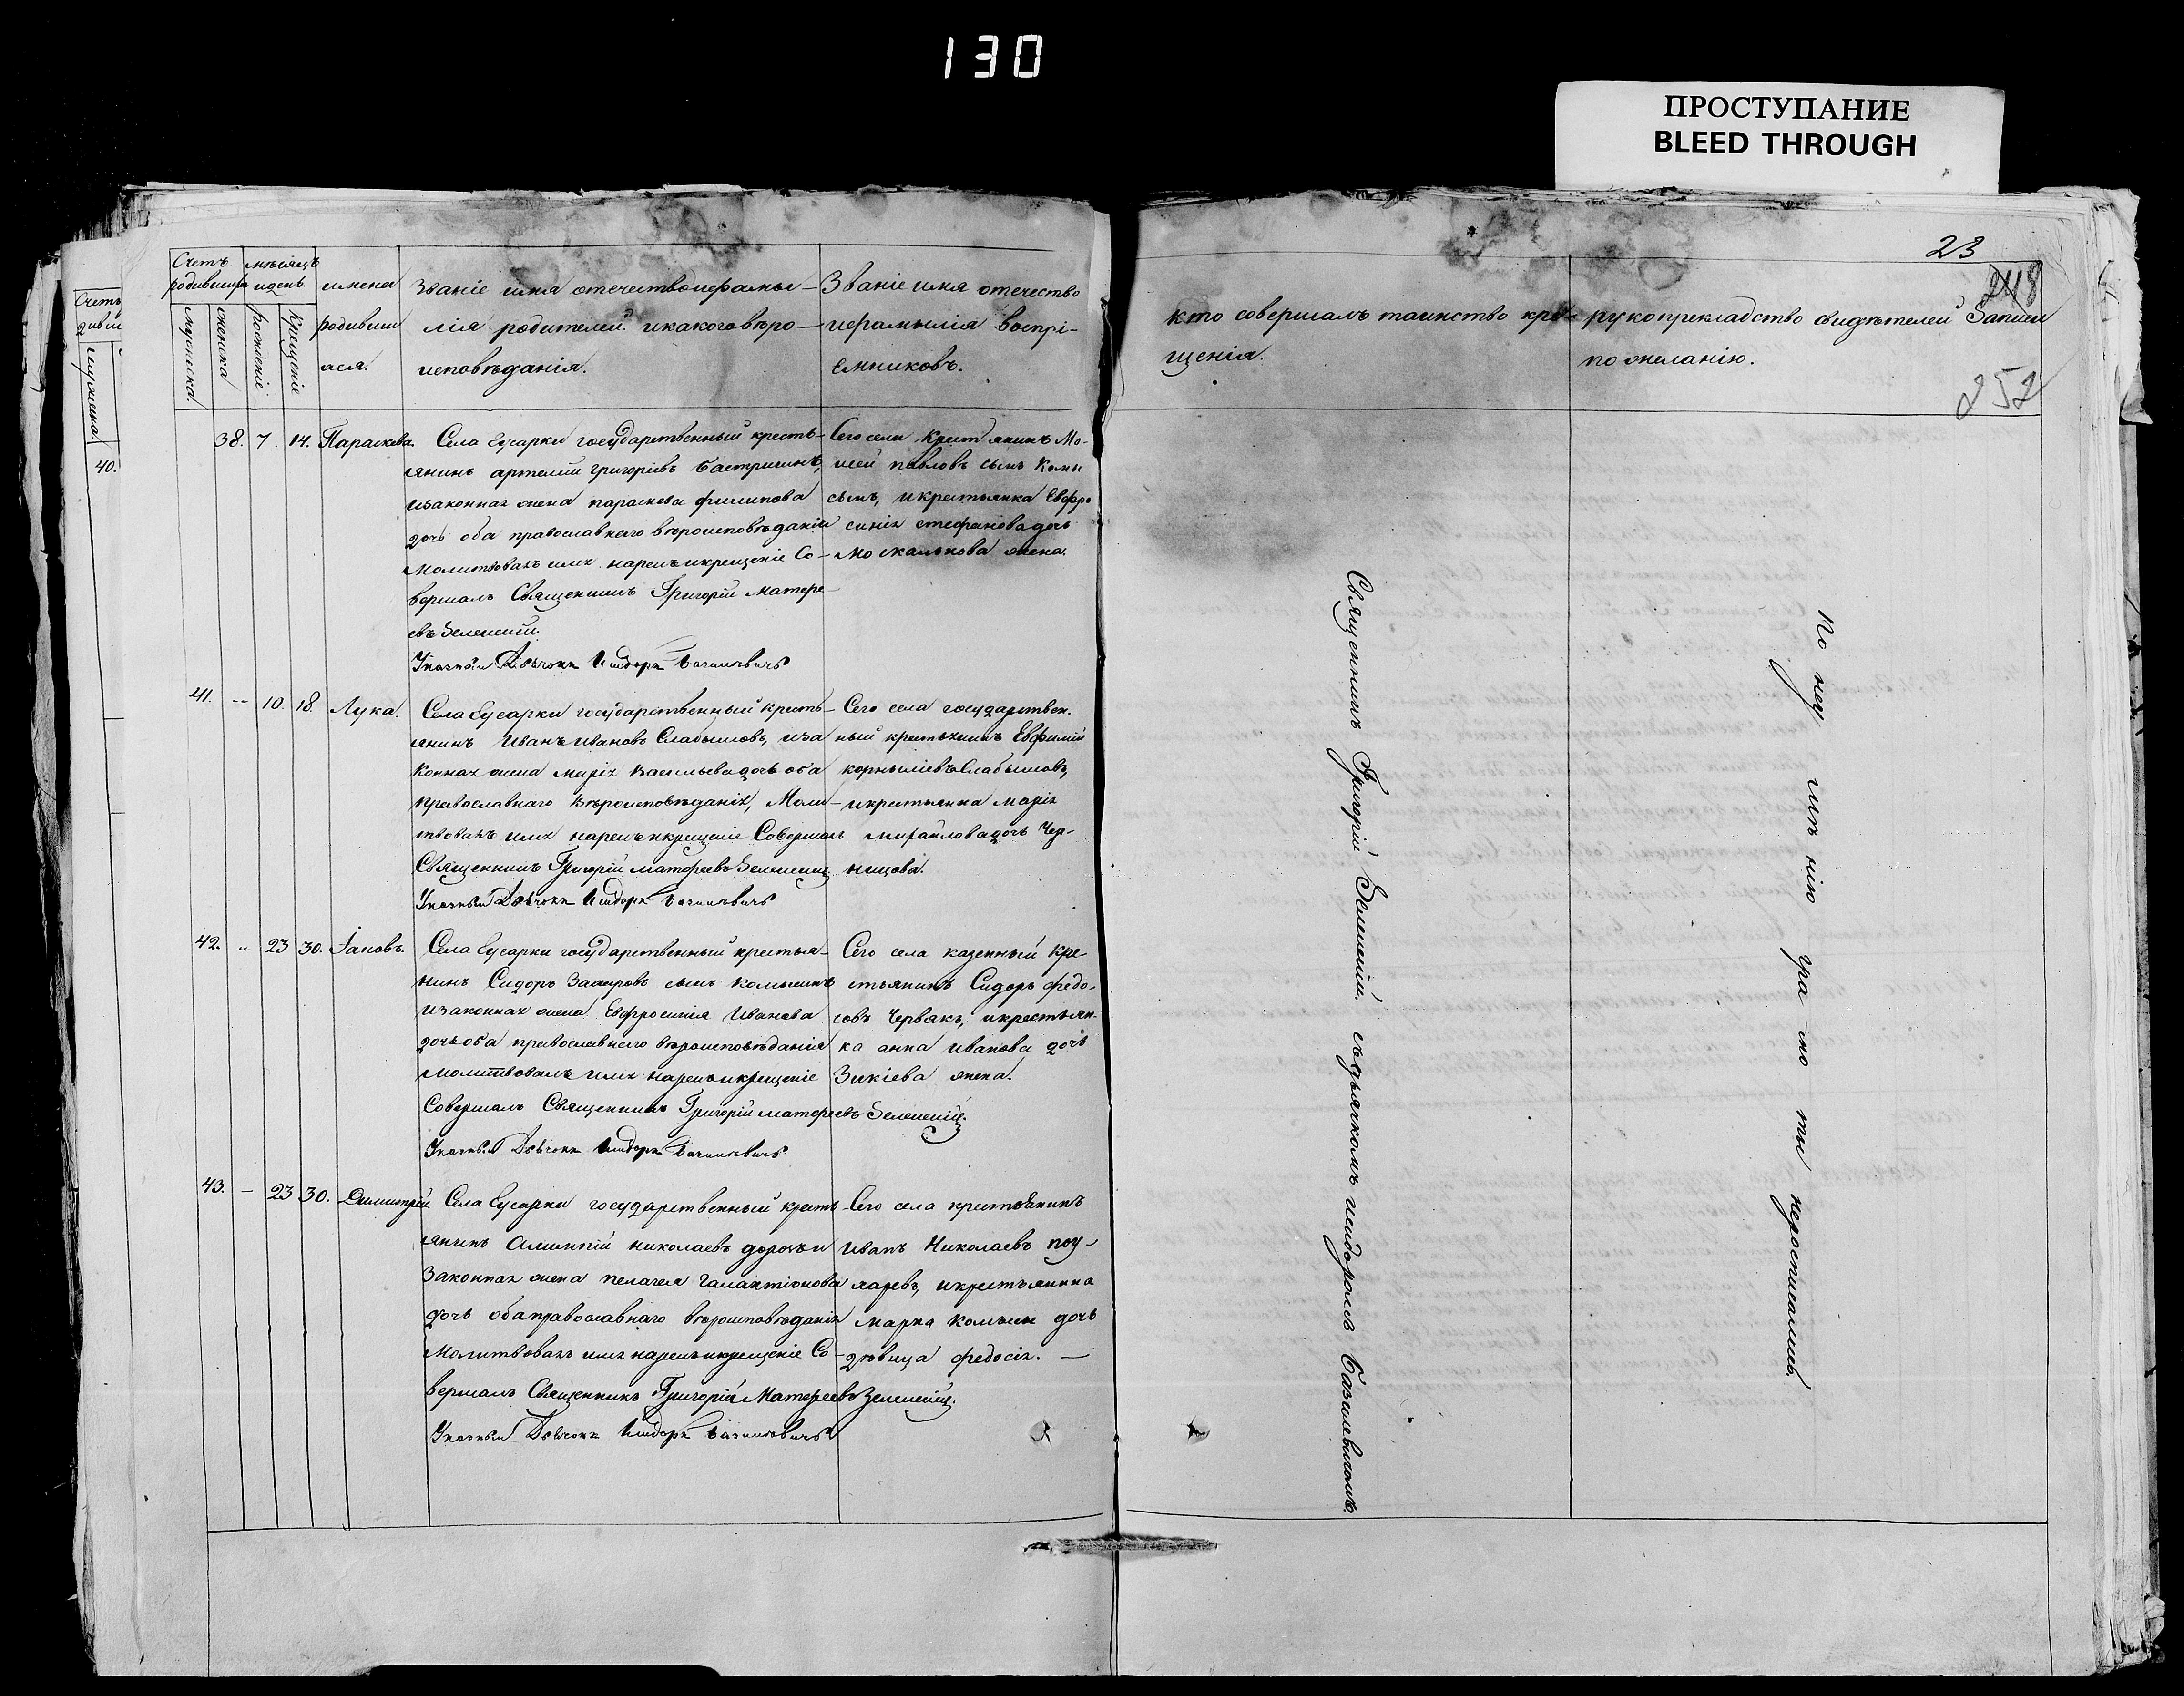 130
ПРОСТУПАНИЕ
BLEED THROUGH
23
248
252
Счетъ родившихся
мужеска.
женска
мѣсяцъ и день.
рожденіе
Крещеніе
имена родивши
лся.
Званіе имя отечество и фамы-
лія родителей. и какого вѣро-
исповѣданія.
Званіе имя отечество
и фамылія воспрі-
емниковъ.
кто совершалъ таинство кре-
щенія.
рукоприкладство свидѣтелей Записи
по желанію.
40.
38. 7. 14. Параскева.
Села Еусарки государственный кресть-
янинъ артемій григоріевъ
изаконная жена параскева филипова
дочь оба православнаго вѣроисповѣданія
Молитвовалъ имя нарекъ и крещеніе Со-
вершалъ Священникъ Григорій Матѳе-
евъ Зеленецій.
Указный Дьячокъ Исидоръ Базилевичъ
Сего села Крестьянинъ Мо-
исей павловъ сынъ Комы
сынъ, и крестьянка Евфро
синія стефанова дочь
Москалькова жена.
41. -- 10. 18. Лука.
Села Еусарки государственный кресть-
янинъ Иванъ Ивановъ Слабышовъ, иза
конная жена марія Васильева дочь оба
православнаго вѣроисповѣданія, Моли-
твовалъ имя нарекъ и крещеніе Совершалъ
Священникъ Григорій матѳеевъ Зеленецій
Указный Дьячокъ Исидоръ Базилевичъ
Сего села государствен.
ный крестьянинъ Евфимій
корныліевъ Слабышовъ,
и крестьянка марія
михайлова дочь Чер-
ницова.
42. .. 23 30. Іаковъ.
Села Еусарки государственный крестья-
нинъ Сидоръ Захаровъ сынъ комышинъ
изаконная жена Евфросинія Иванова
дочь оба православнаго вѣроисповѣданія
Молитвовалъ имя нарекъ и крещеніе
Совершалъ Священникъ Григорій матѳеевъ Зеленецій.
Указный Дьячокъ Исидоръ Базилевичъ
Сего села казенный кре-
стьянинъ Сидоръ федо-
совъ Червякъ, и крестьян-
ка анна иванова дочь
Зикіева жена.
43. - 23 30. Димитрій
Села Еусарки государственный кресть-
янинъ Алимпій николаевъ
Законная жена пелагея Галактіонова
дочь оба православнаго вѣроисповѣданія
Молитвовалъ имя нарекъ и крещеніе Со-
вершалъ Священникъ Григорій Матѳеевъ Зеленецій.
Указный Дьячокъ Исидоръ Базилевичъ
Сего села крестьянинъ
Иванъ Николаевъ поу-
ларевъ, и крестьянина
марка дочь
дѣвица федосія. -
Священникъ Григорій Зеленецій. съ дьячкомъ исидоромъ Базилевичомъ.
По неу мѣ нію гра мо ты нероспысались.